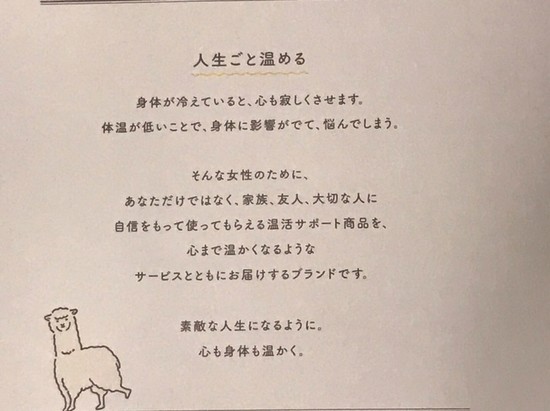 人生ごと温める
身体が冷えていると、心も寂しくさせます。
体温が低いことで、身体に影響がでて、悩んでしまう。
そんな女性のために、
あなただけではなく、家族、友人、大切な人に
自信をもって使ってもらえる温活サポート商品を、
心まで温かくなるような
サービスとともにお届けするブランドです。
素敵な人生になるように。
心も身体も温かく。